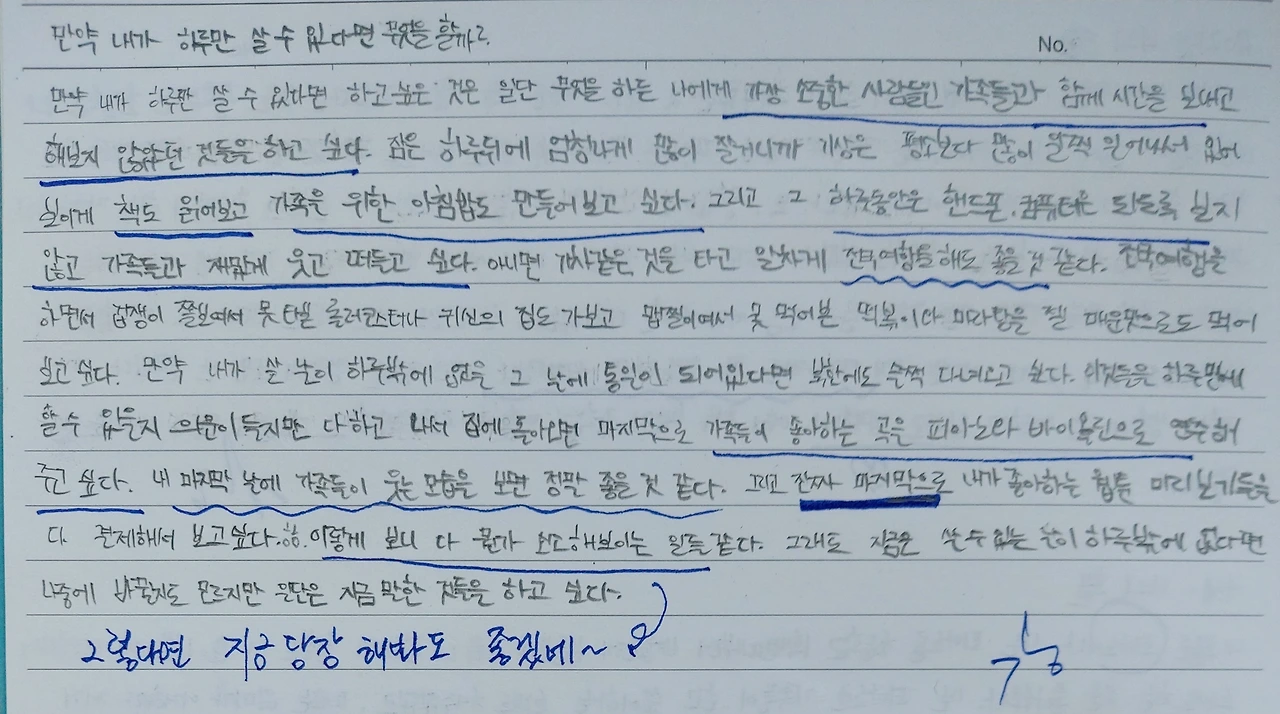 만약 내가 하루만 살 수 있다면 무엇을 할까?
No.
만약 내가 하루만 살 수 있다면 하고싶은 것은 일단 무엇을 하든 나에게 가장 소중한 사람들인 가족들과 함께 시간을 보내고
해보지 않았던 것들을 하고 싶다. 잠은 하루뒤에 엄청나게 많이 잘거니까 기상은 평소보다 많이 일찍 일어나서 있어
보이게 책도 읽어보고 가족을 위한 아침밥도 만들어보고 싶다. 그리고 그 하루동안은 핸드폰, 컴퓨터은 되도록 보지
않고 가족들과 재밌게 웃고 떠들고 싶다. 아니면 기차같은 것을 타고 알차게 전국여행을 해도 좋을 것 같다. 전국여행을
하면서 겁쟁이 쫄보여서 못 타본 롤러코스터나 귀신의 집도 가보고 맵찔이여서 못 먹어본 떡볶이나 마라탕을 젤 매운맛으로도 먹어
보고 싶다. 만약 내가 살 날이 하루밖에 없을 그 날에 통일이 되어있다면 북한에도 슬쩍 다녀오고 싶다. 이것들을 하루만에
할 수 있을지 의문이 들지만 다 하고 나서 집에 돌아오면 마지막으로 가족들이 좋아하는 곡을 피아노와 바이올린으로 연주해
주고 싶다. 내 마지막 날에 가족들이 웃는 모습을 보면 정말 좋을 것 같다. 그리고 진짜 마지막으로 내가 좋아하는 웹툰 미리보기들을
다 결제해서 보고싶다. 이렇게 보니 다 뭔가 소소해보이는 일들같다. 그래도 지금은 살 수 있는 날이 하루밖에 없다면
나중에 바뀔지도 모르지만 일단은 지금 말한 것들을 하고 싶다.
그렇다면 지금 당장 해봐도 좋겠네~